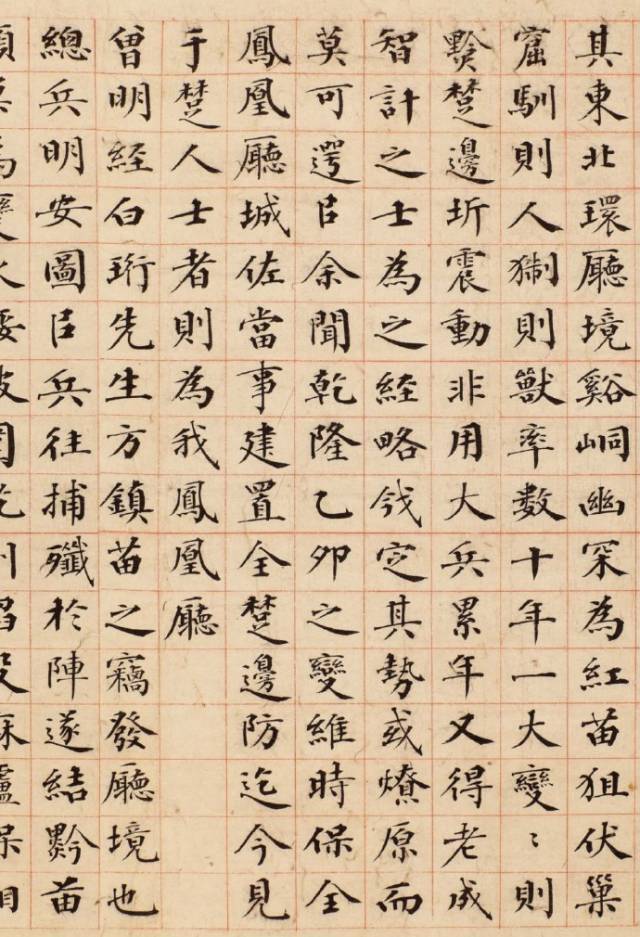 其東北環廳境谿峒幽罙為紅苗狙伏巢
窟馴則人猘則獸率數十年一大變〻則
黔楚邊圻震動非用大兵累年又得老成
智計之士為之經略定其勢或燎原而
莫可遌㠯余聞乾隆乙卯之變維時保全
鳳凰廳城佐當事建置全楚邊防迄今見
于楚人士者則為我鳳凰廳
曾明經白珩先生方鎮苗之竊發廳境也
總兵明安圖㠯兵往捕殲於陣遂結黔苗